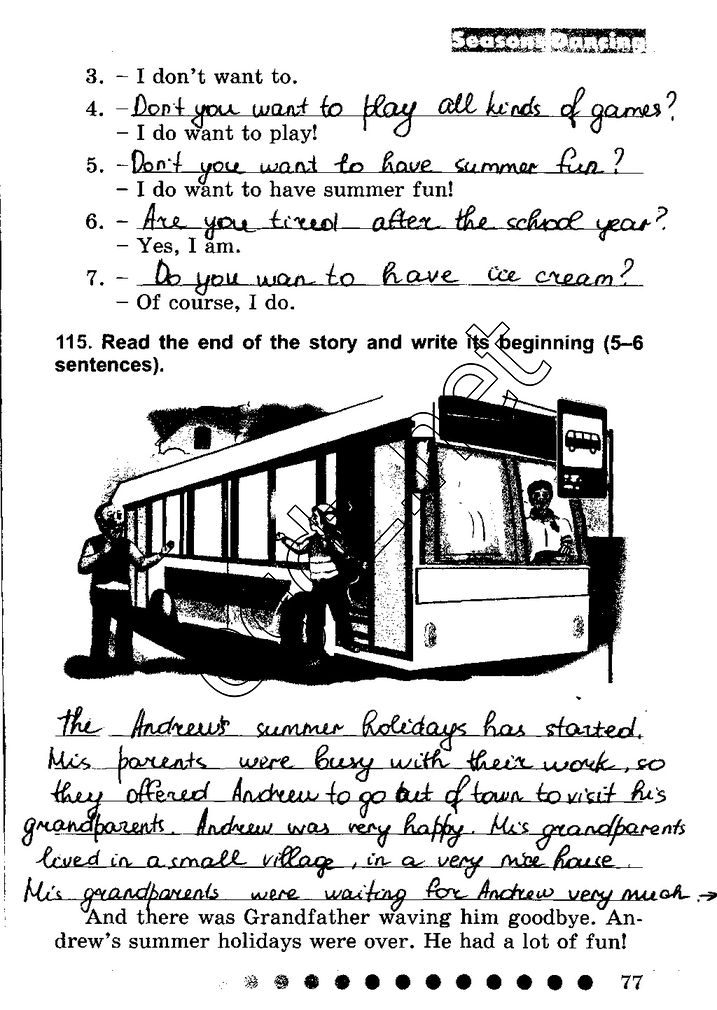 Seasons Dancing
3. – I don't want to.
4. – Don't you want to play all kinds of games?
– I do want to play!
5. – Don't you want to have summer fun?
– I do want to have summer fun!
6. – Are you tired after the school year?
– Yes, I am.
7. – Do you wan to have ice cream?
– Of course, I do.
115. Read the end of the story and write its beginning (5–6
sentences).
the Andrew's summer holidays has started.
His parents were busy with their work, so
they offered Andrew to go out of town to visit his
grandparents. Andrew was very happy. His grandparents
lived in a small village, in a very nice house.
His grandparents were waiting for Andrew very much →
And there was Grandfather waving him goodbye. An-
drew's summer holidays were over. He had a lot of fun!
77